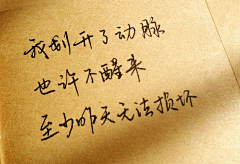 我割开了动脉
也许不醒来
至少昨天无法损坏